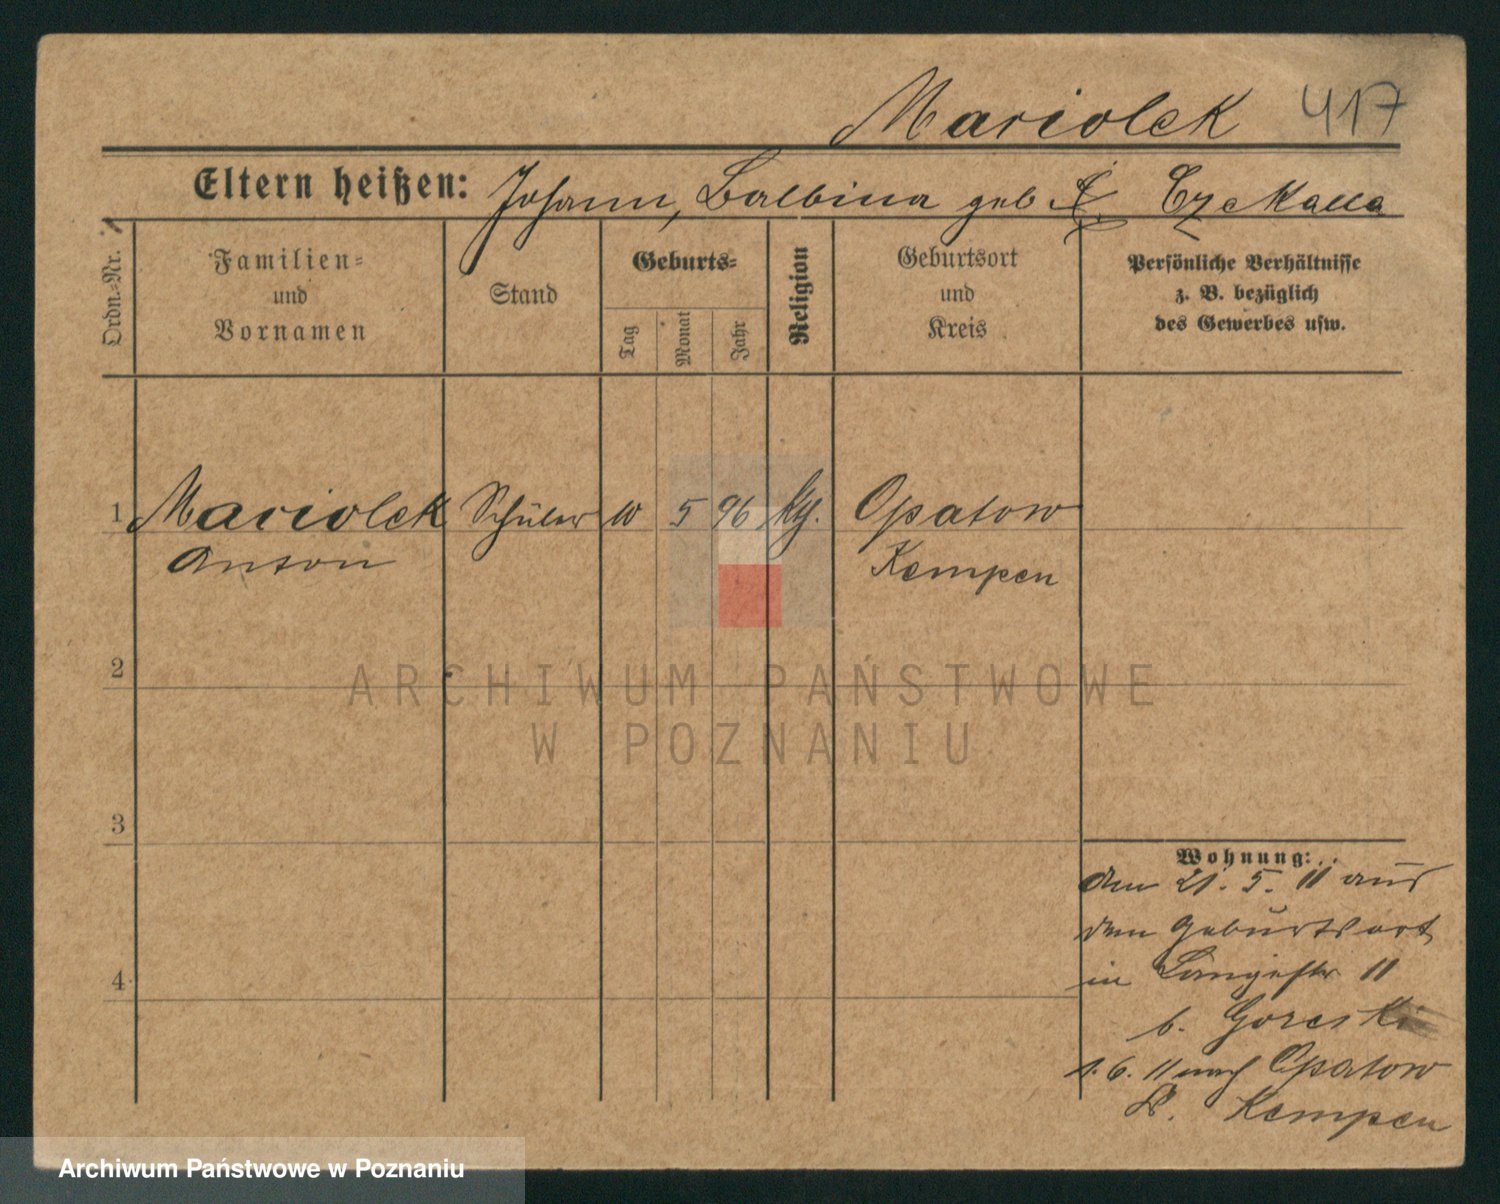 Mariolek 417
Eltern heißen: Johann, Balbina geb. Czekalla
Ordn.-Nr.
Familien-
und
Vornamen
Stand
Geburts-
Tag
Monat
Jahr
Religion
Geburtsort
und
Kreis
Persönliche Verhältnisse
z. B. bezüglich
des Gewerbes usw.
1 Mariolek Schüler 10 5 96 kth. Opatow
Anton Kempen
2
3
4
Wohnung:
den 21. 5. 11 aus
dem Geburtsort
in Langestr 11
b. Gorcski
1. 6. 11 nach Opatow
Kr. Kempen
ARCHIWUM PAŃSTWOWE
W POZNANIU
Archiwum Państwowe w Poznaniu